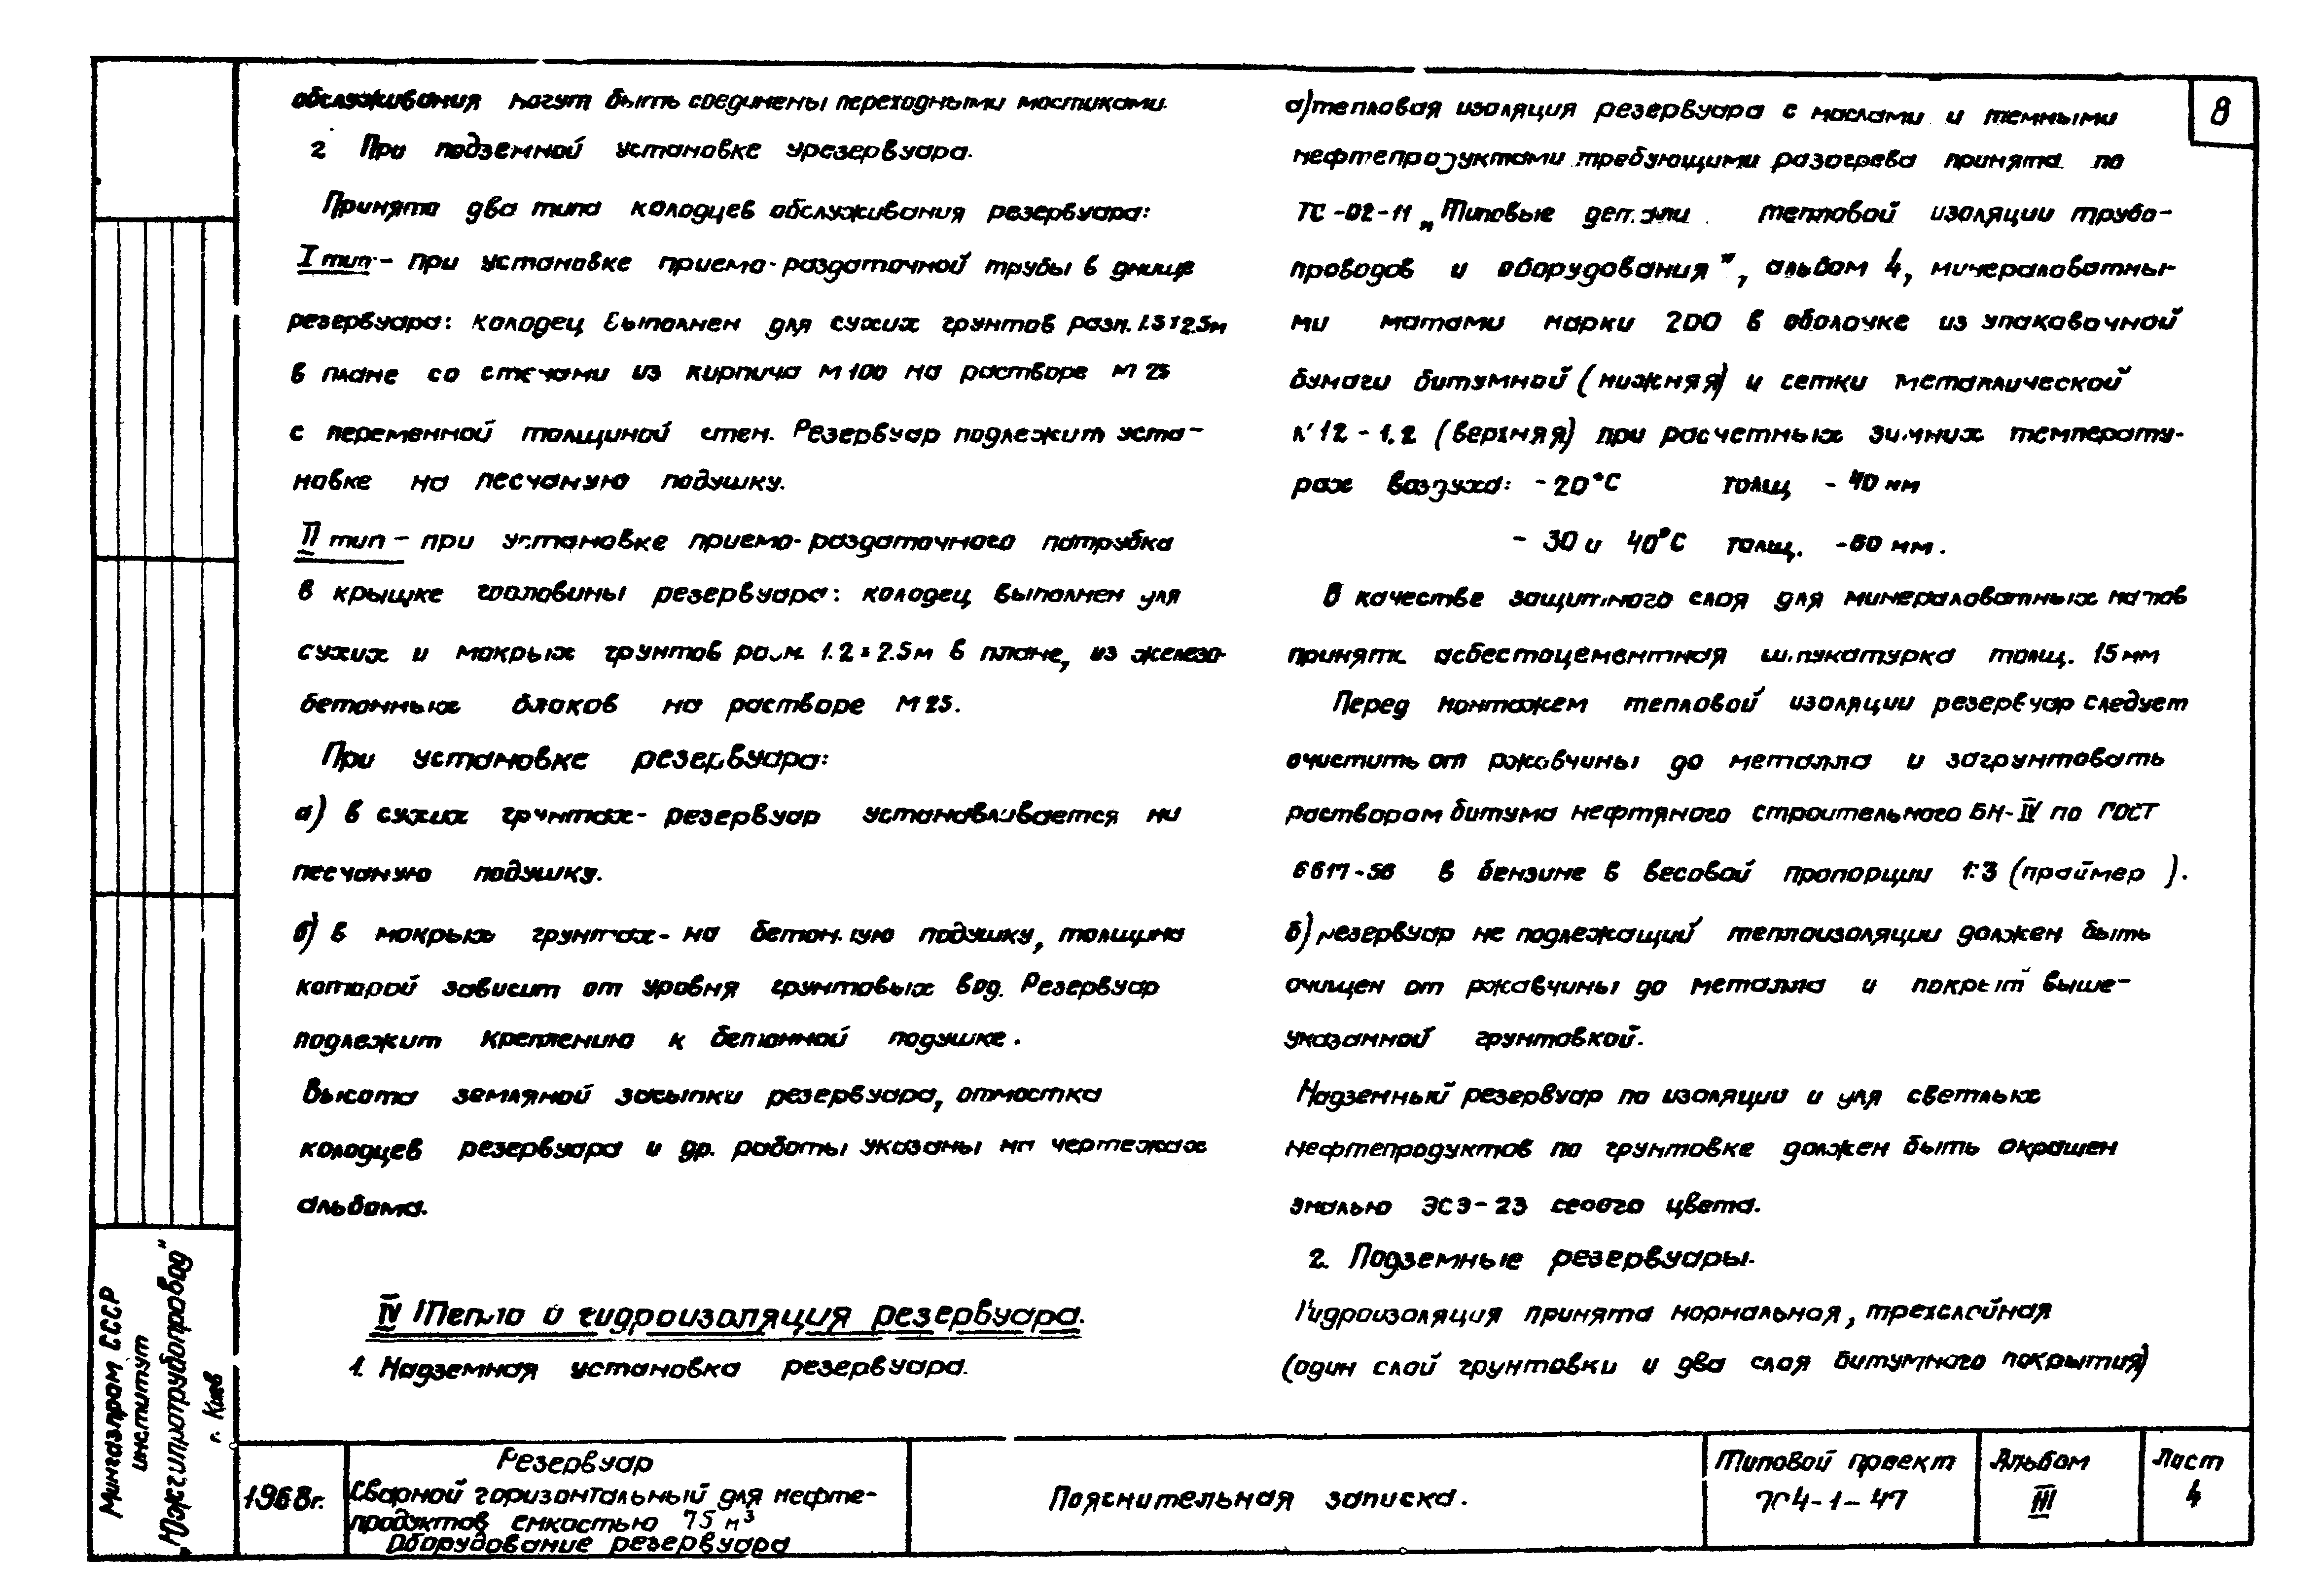 обслуживания могут быть соединены переходными мостиками.
2 При подземной установке урезервуара.
Принято два типа колодцев обслуживания резервуара:
I тип - при установке приемо-раздаточной трубы в днище
резервуара: колодец выполнен для сухих грунтов разм. 1.5×2.5м
в плане со стенами из кирпича М100 на растворе М 25
с переменной толщиной стен. Резервуар подлежит уста-
новке на песчаную подушку.
II тип - при установке приемо-раздаточного патрубка
в крышке горловины резервуара: колодец выполнен для
сухих и мокрых грунтов разм. 1.2×2.5м в плане, из железо-
бетонных блоков на растворе М25.
При установке резервуара:
а) в сухих грунтах- резервуар устанавливается на
песчаную подушку.
б) в мокрых грунтах- на бетонную подушку, толщина
которой зависит от уровня грунтовых вод. Резервуар
подлежит креплению к бетонной подушке.
Высота земляной засыпки резервуара, отмостка
колодцев резервуара и др. работы указаны на чертежах
альбома.
IV Тепло и гидроизоляция резервуара.
1. Надземная установка резервуара.
а) тепловая изоляция резервуара с маслами и темными
нефтепродуктами требующими разогрева принята по
ТС-02-11 „Типовые детали тепловой изоляции трубо-
проводов и оборудования", альбом 4, минераловатны-
ми матами марки 200 в оболочке из упаковочной
бумаги битумной (нижняя) и сетки металлической
№12-1.2 (верхняя) при расчетных зимних температу-
рах воздуха: -20°С толщ - 40 мм
- 30 и 40°С толщ. -60 мм.
В качестве защитного слоя для минераловатных матов
принята асбестоцементная штукатурка толщ. 15мм
Перед монтажем тепловой изоляции резервуар следует
очистить от ржавчины до металла и загрунтовать
раствором битума нефтяного строительного БН-IV по ГОСТ
6617-56 в бензине в весовой пропорции 1:3 (праймер ).
б) резервуар не подлежащий теплоизоляции должен быть
очищен от ржавчины до металла и покрыт выше-
указанной грунтовкой.
Надземный резервуар по изоляции и для светлых
нефтепродуктов по грунтовке должен быть окрашен
эмалью ЭСЭ-23 серого цвета.
2. Подземные резервуары.
Гидроизоляция принята нормальная, трехслойная
(один слой грунтовки и два слоя битумного покрытия)
8
Мингазпром СССР
институт
„Южгипротрубопровод"
г. Киев
1968г.
Резервуар
сварной горизонтальный для нефте-
продуктов емкостью 75 м³
Оборудование резервуара
Пояснительная записка.
Типовой проект
704-1-47
Альбом
III
Лист
4